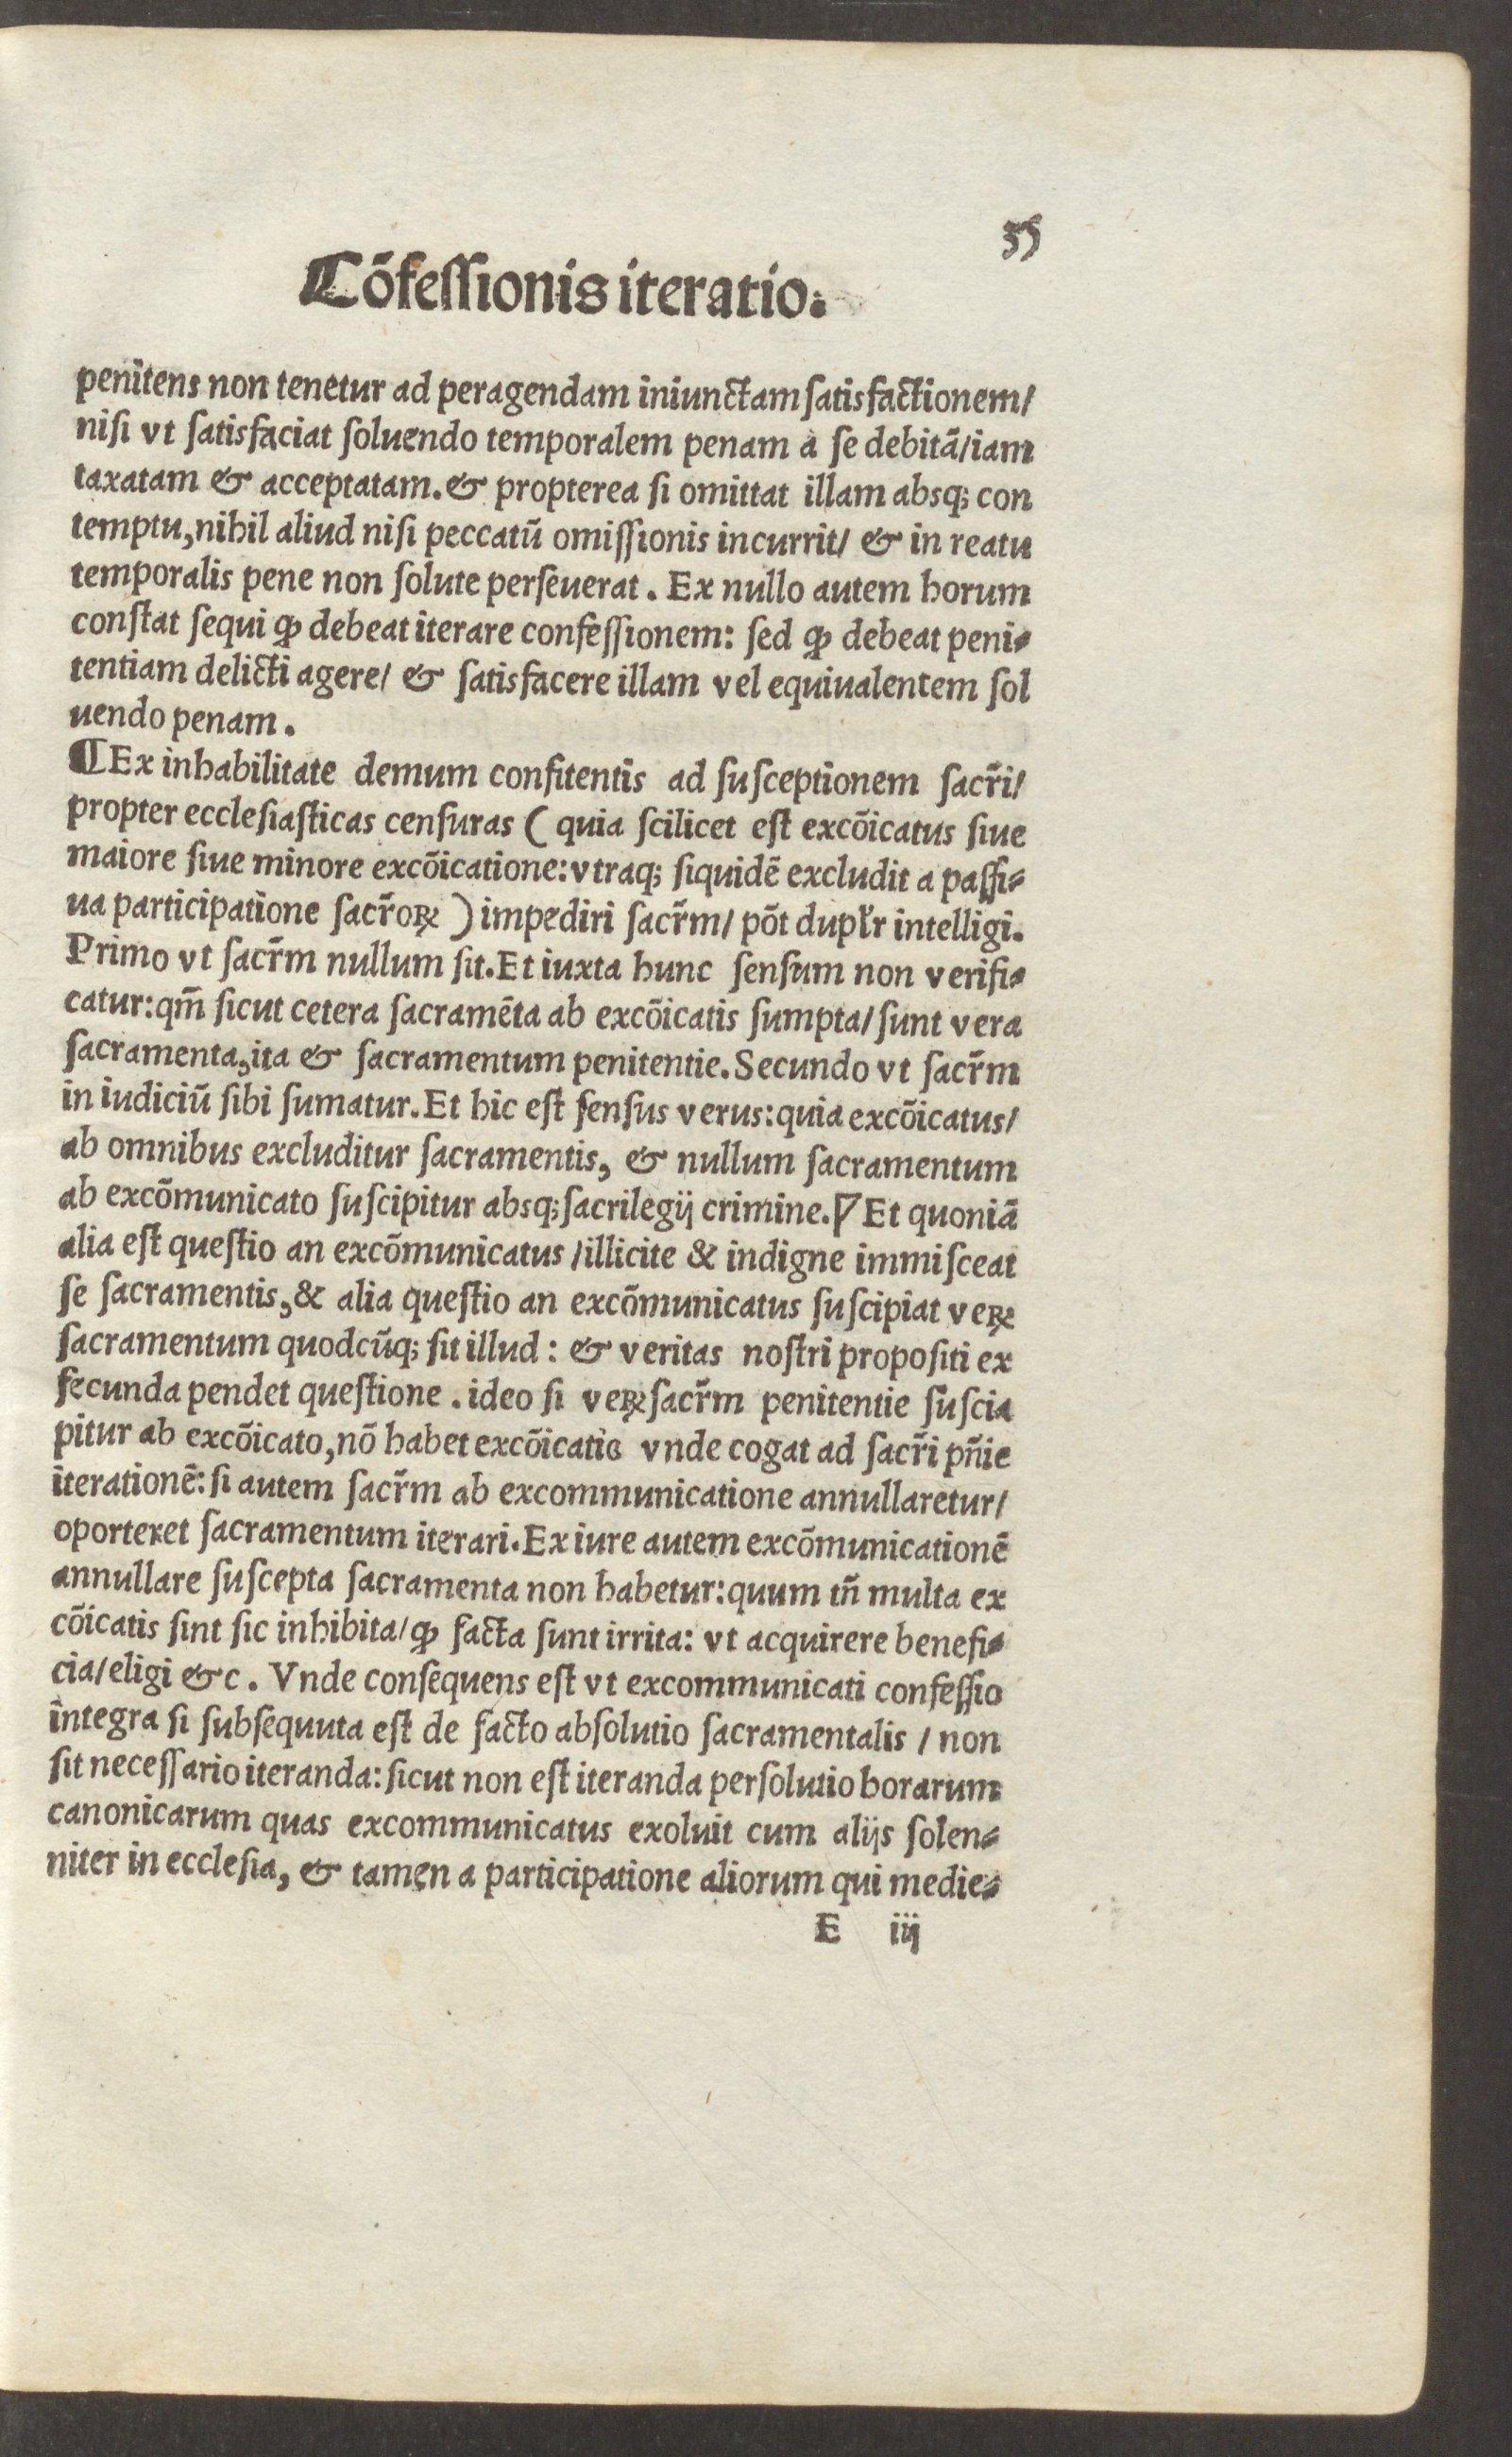 35
Cōfeſſionis iteratio.
penitens non tenetur ad peragendam iniunctam ſatisfactionem/
niſi vt ſatisfaciat ſoluendo temporalem penam à ſe debitā/iam
taxatam & acceptatam. & propterea ſi omittat illam absq; con
temptu, nihil aliud niſi peccatū omiſſionis incurrit/ & in reatu
temporalis pene non ſolute perſeuerat. Ex nullo autem horum
conſtat ſequi ꝙ debeat iterare confeſſionem: ſed ꝙ debeat peni⸗
tentiam delicti agere/ & ſatisfacere illam vel equiualentem ſol
uendo penam.
¶Ex inhabilitate demum confitentis ad ſuſceptionem ſacr̃i/
propter eccleſiaſticas cenſuras ( quia ſcilicet eſt excōicatus ſiue
maiore ſiue minore excōicatione: vtraq; ſiquidē excludit a paſſi⸗
ua participatione ſacr̃oꝝ ) impediri ſacr̃m/ pōt duplr̃ intelligi.
Primo vt ſacr̃m nullum ſit. Et iuxta hunc ſenſum non verifi⸗
catur: qm̃ ſicut cetera ſacramēta ab excōicatis ſumpta/ ſunt vera
ſacramenta, ita & ſacramentum penitentie. Secundo vt ſacr̃m
in iudiciū ſibi ſumatur. Et hic eſt ſenſus verus: quia excōicatus/
ab omnibus excluditur ſacramentis, & nullum ſacramentum
ab excōmunicato ſuſcipitur absq; ſacrilegij crimine. Et quoniā
alia eſt queſtio an excōmunicatus /illicite & indigne immiſceat
ſe ſacramentis, & alia queſtio an excōmunicatus ſuſcipiat veꝝ
ſacramentum quodcūq; ſit illud: & veritas noſtri propoſiti ex
ſecunda pendet queſtione. ideo ſi veꝝ ſacr̃m penitentie ſuſcia
pitur ab excōicato, nō habet excōicatio vnde cogat ad ſacr̃i pñie
iterationē: ſi autem ſacr̃m ab excommunicatione annullaretur/
oporteret ſacramentum iterari. Ex iure autem excōmunicationē
annullare ſuſcepta ſacramenta non habetur: quum tñ multa ex
cōicatis ſint ſic inhibita/ ꝙ facta ſunt irrita: vt acquirere benefi⸗
cia/ eligi &c. Vnde conſequens eſt vt excommunicati confeſſio
integra ſi ſubſequuta eſt de facto abſolutio ſacramentalis / non
ſit neceſſario iteranda: ſicut non eſt iteranda perſolutio horarum
canonicarum quas excommunicatus exoluit cum alijs ſolen⸗
niter in eccleſia, & tamen a participatione aliorum qui medie⸗
E iij